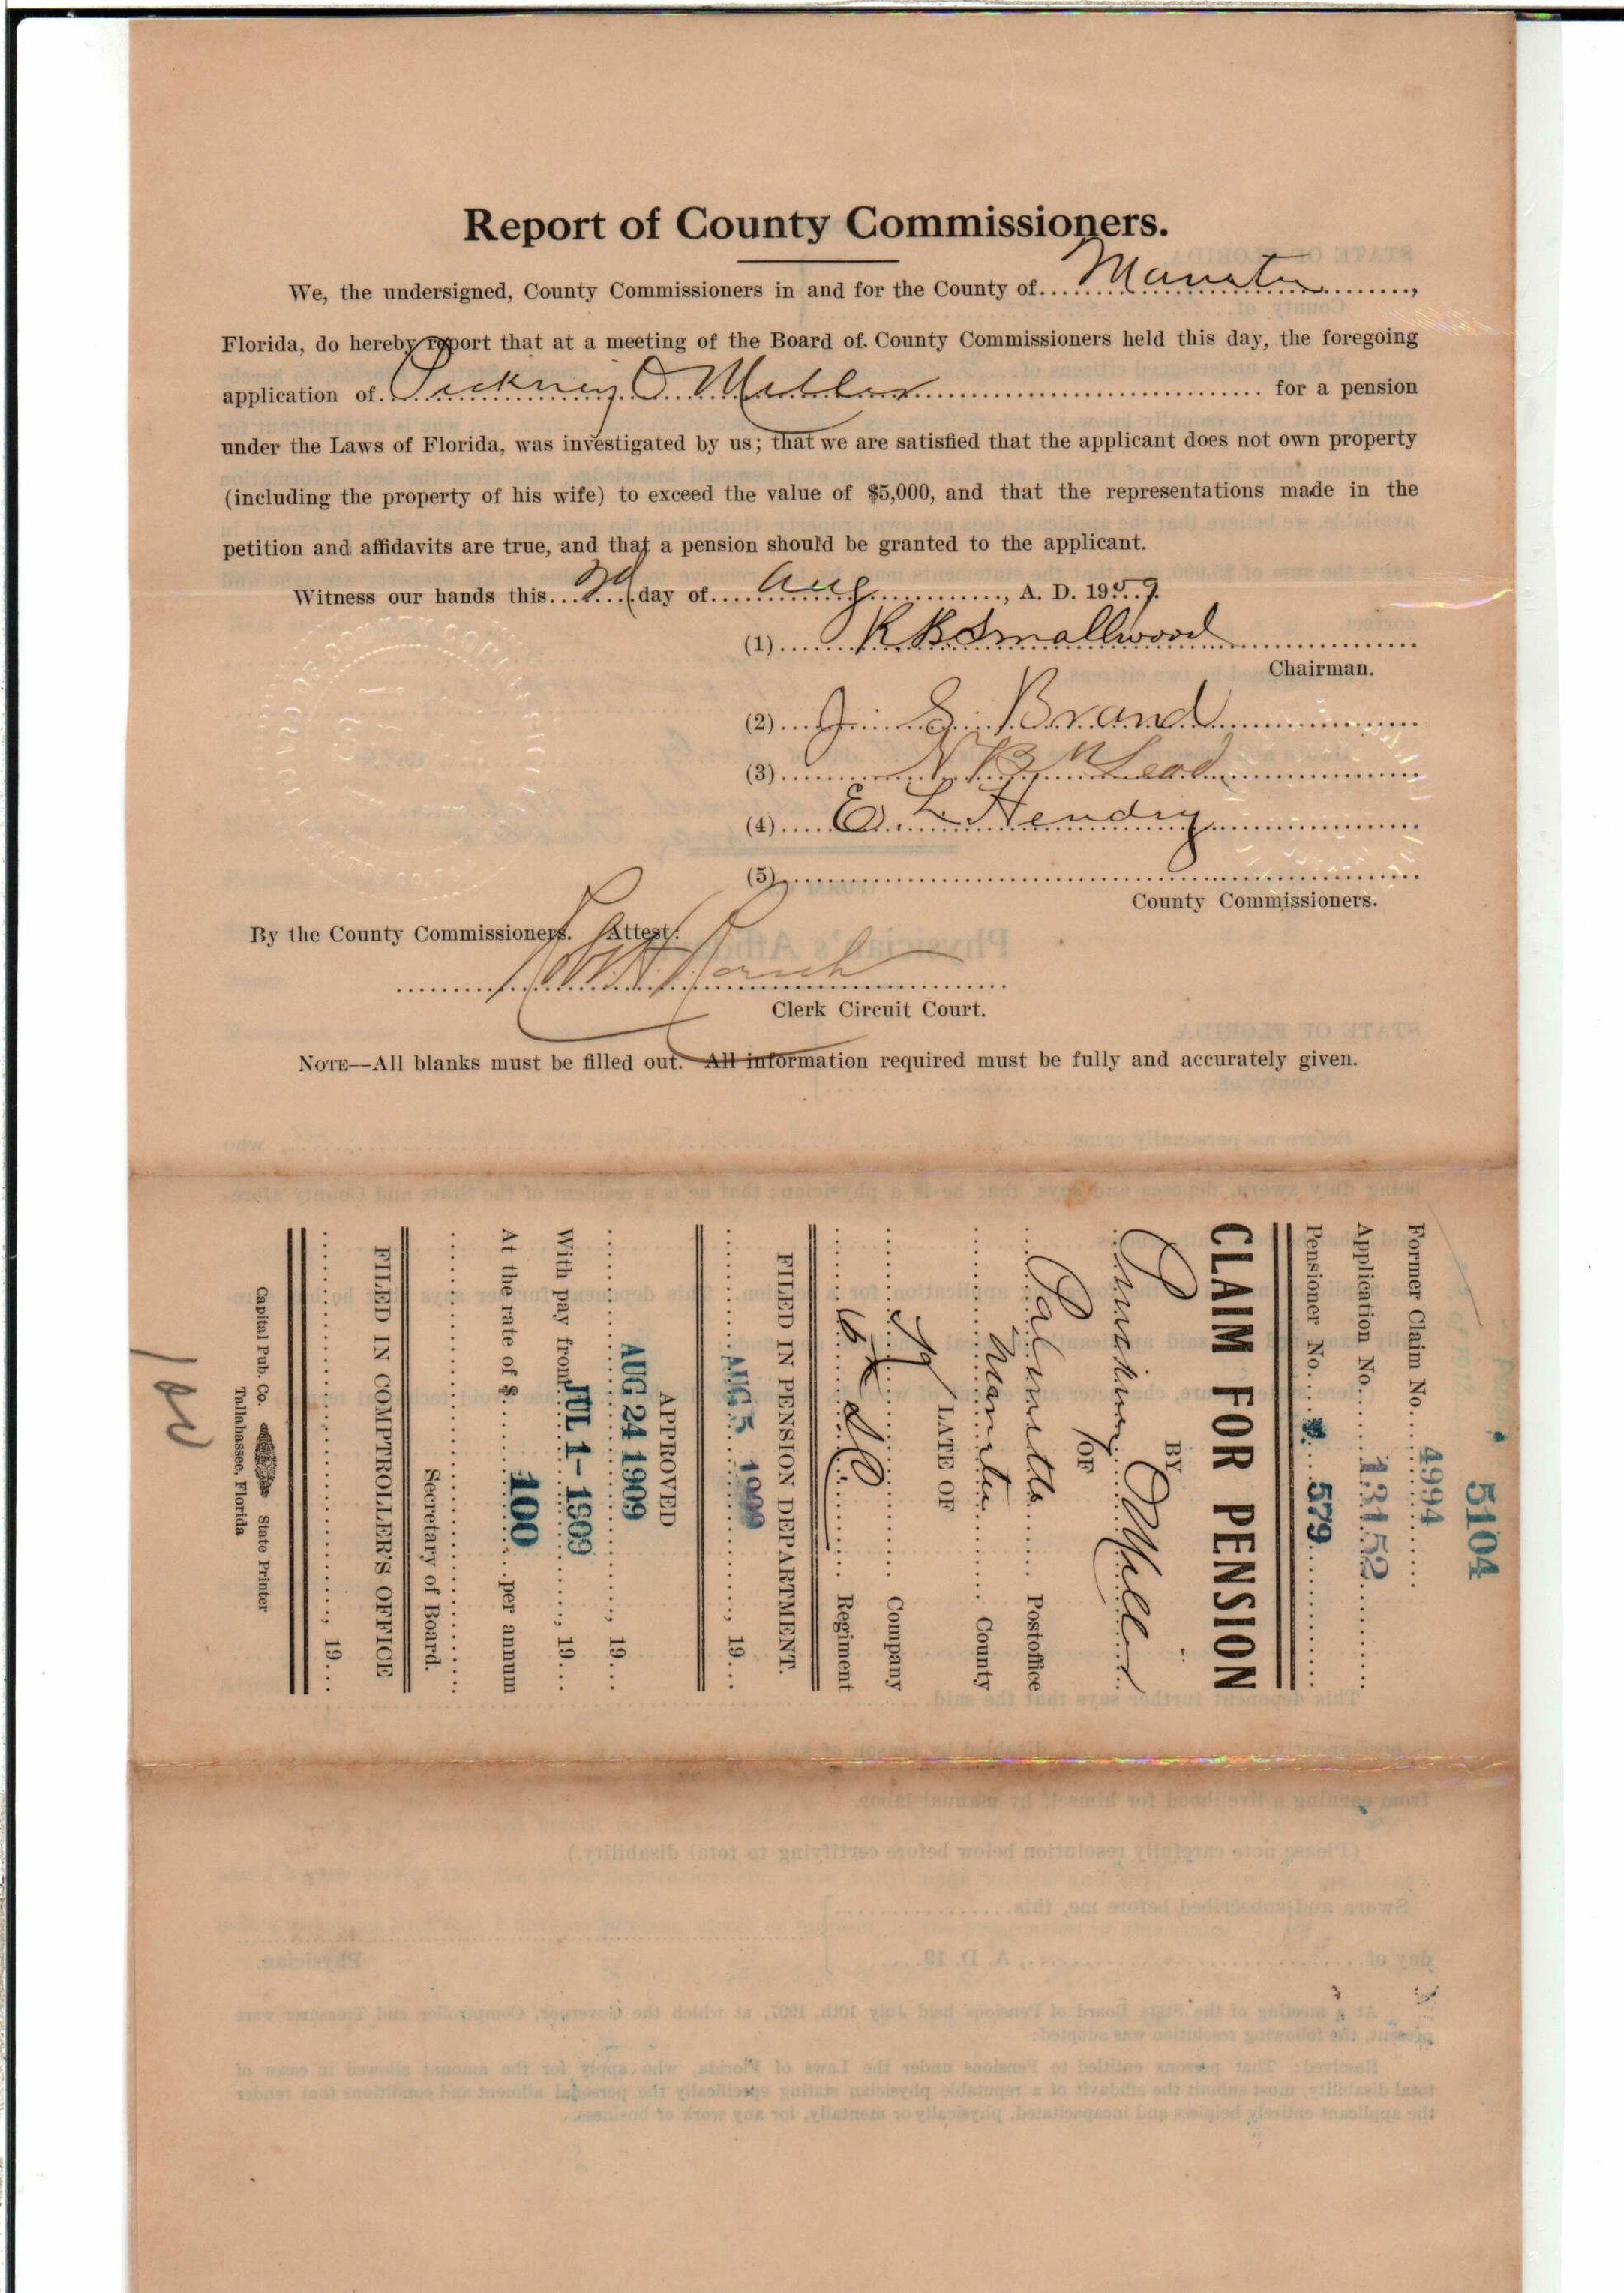 Report of County Commissioners.
We, the undersigned, County Commissioners in and for the County of Manatee,
Florida, do hereby report that at a meeting of the Board of. County Commissioners held this day, the foregoing
application of Pickney O Miller for a pension
under the Laws of Florida, was investigated by us; that we are satisfied that the applicant does not own property
(including the property of his wife) to exceed the value of $5,000, and that the representations made in the
petition and affidavits are true, and that a pension should be granted to the applicant.
Witness our hands this day of Aug, A. D. 1909.
(1) Smallwood
Chairman.
(2) J. G. Brand
(3) N B McLeod
(4) E L Hendry
(5)
County Commissioners.
By the County Commissioners. Attest:
Clerk Circuit Court.
NOTE—All blanks must be filled out. All information required must be fully and accurately given.
5104
Former Claim No. 4994
Application No. 13152
Pensioner No. 579
CLAIM FOR PENSION
BY
Miller
OF
Palmetto Postoffice
Manatee County
LATE OF
Company
6th SC Regiment
FILED IN PENSION DEPARTMENT.
AUG 5 1909, 19
APPROVED
AUG 24 1909, 19
With pay from JUL 1- 1909, 19
At the rate of $ 100 per annum
Secretary of Board.
FILED IN COMPTROLLER'S OFFICE
, 19
Capital Pub. Co. State Printer
Tallahassee, Florida